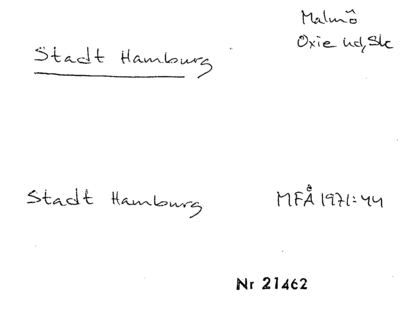 Malmö
Stadt Hamburg
Oxie hd, Sk
Stadt Hamburg MFÅ 1971:44
Nr 21462